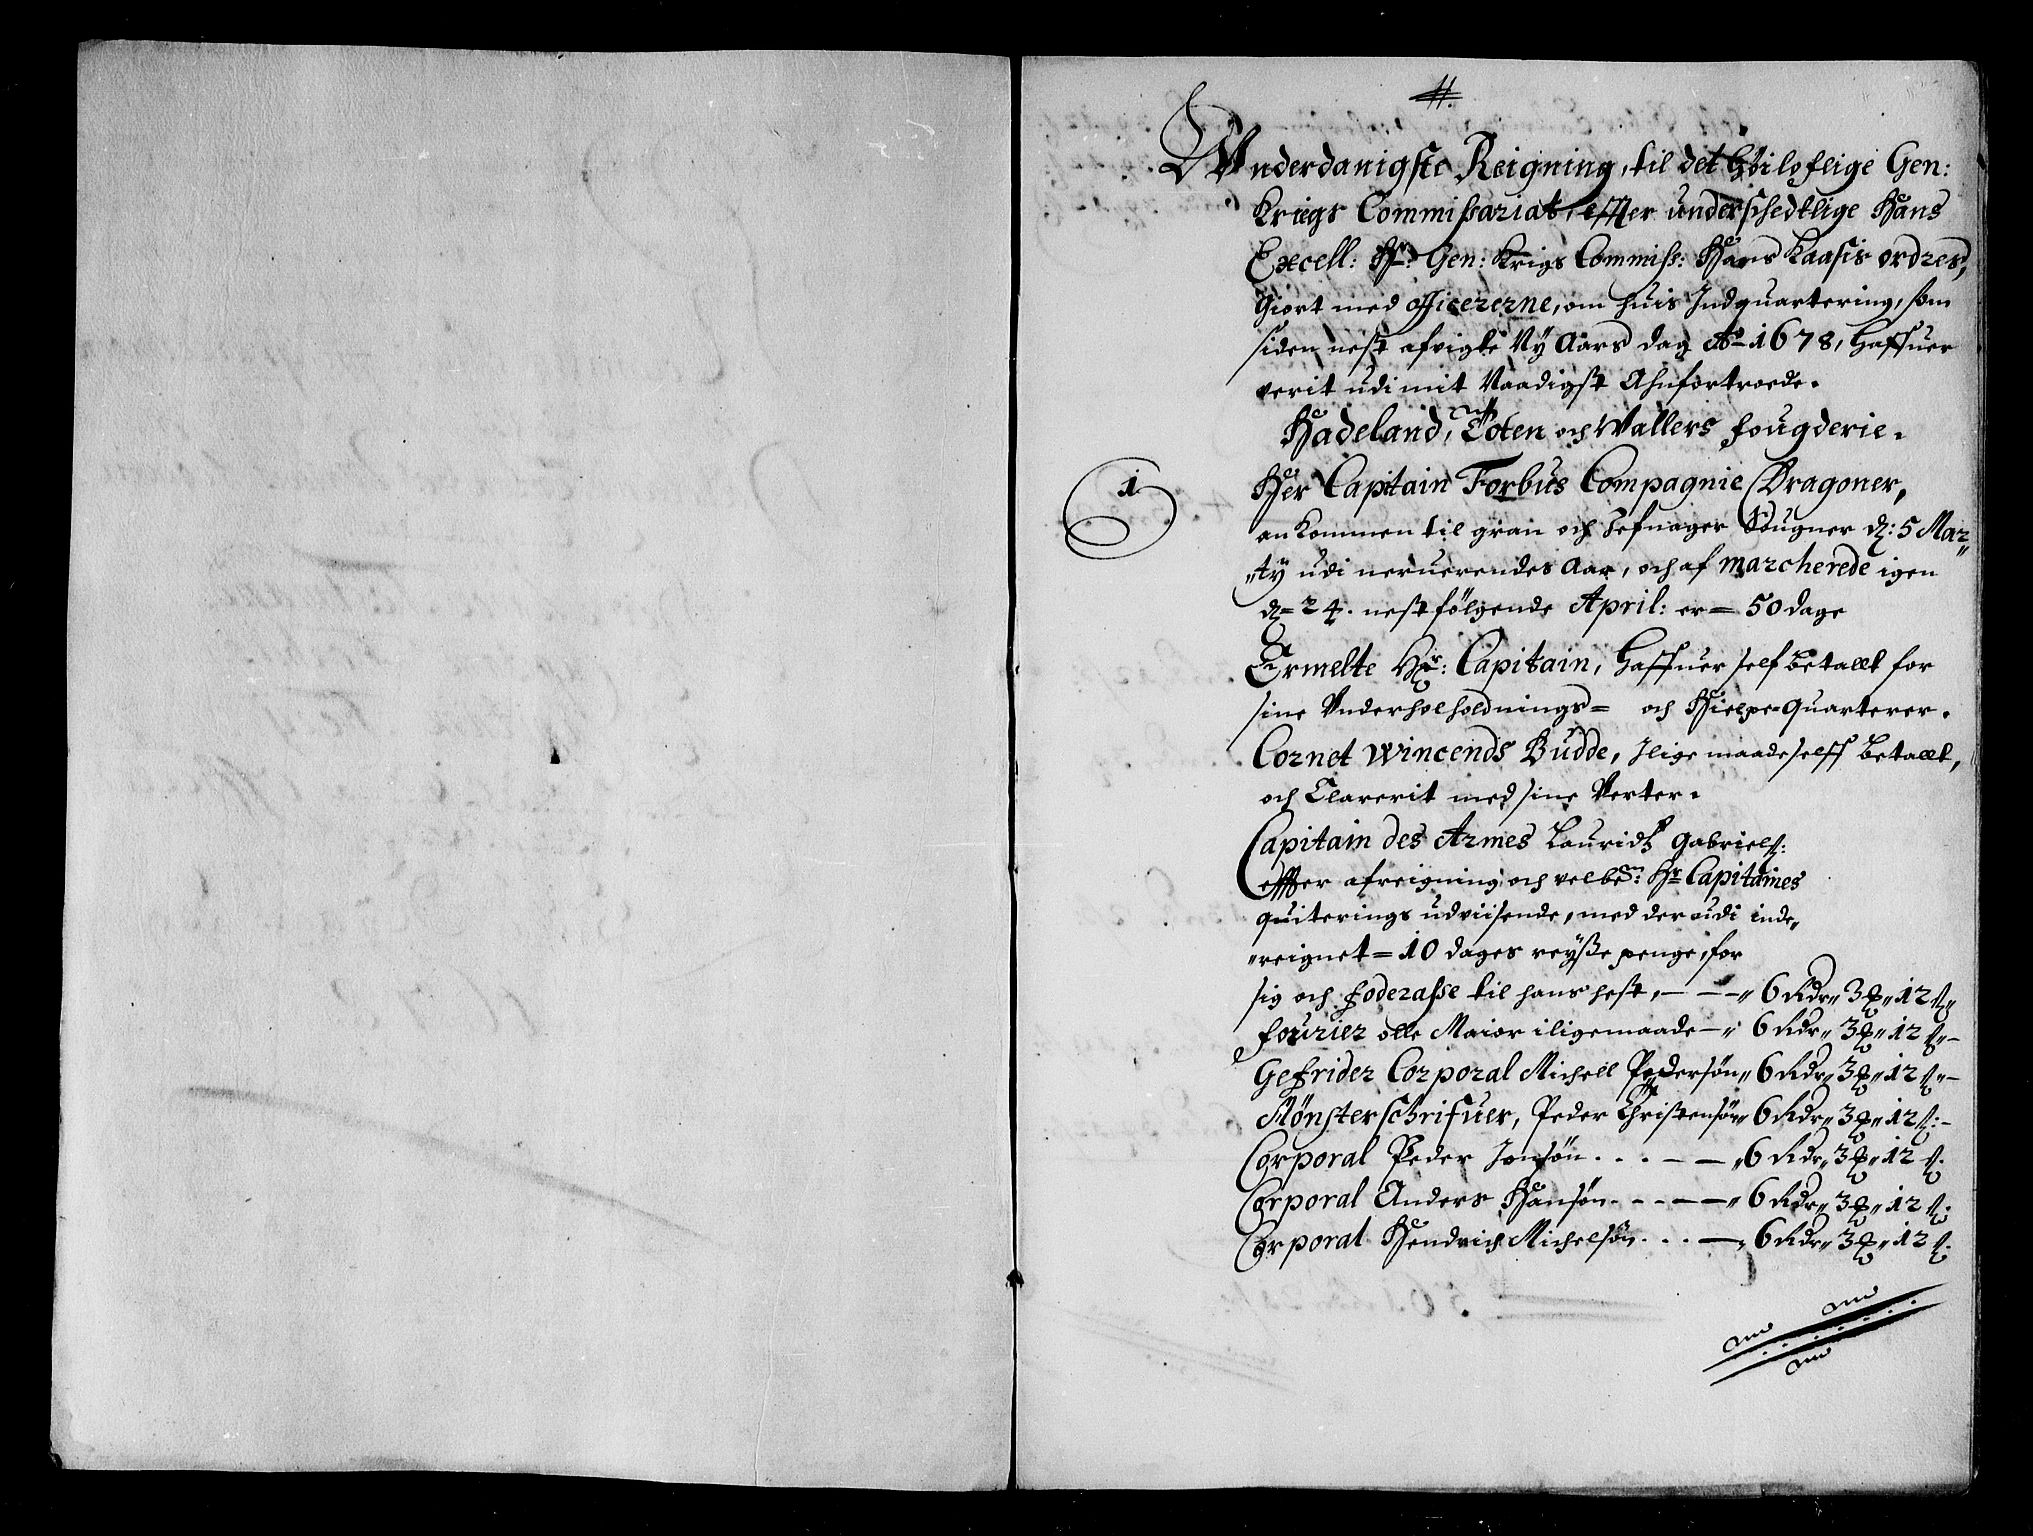 Underdanigste Reigning, til det Høiloflige Gen:
Kriegs Commissariat, effter underschedtlige Hans
Excell: Hr: Gen: Krigs Commiss: Hans Kaasis ordres,
Giort med officererne, om huis Indquartering, som
siden nest afvigte Ny Aars dag Ao 1678, Haffuer
verit udi mit Naadigst Ahnfortroede.
Hadeland, Toten och Wallers fougderie.
1 Her Capitain Forbus Compagnie Dragoner,
ankommen til gran och Jefnager Sougner d: 5 Mar=
"ty udi neruerendes Aar, och af marcherede igen
d= 24. nest følgende April: er= 50 dage
Ermelte Hr: Capitain, Haffuer self betallt for
sine Underholholdnings= och Hielpe=quarterer.
Cornet Wincends Budde, Ilige maade selff betallt,
och Clarerit med sine Verter.
Capitain des Armes Lauridtz Gabriels:
effter afreigning och velbem: Hr Capitaines
quiterings udviisende, med der udi inde„
„reignet= 10 dages reysse penge, for
sig och foderasse til hans hest, — — „ 6 Rdr „ 3 ꝑ „ 12 s„
fourier olle Maior iligemaade — „ 6 Rdr „ 3 ꝑ „ 12 s„ —
Gefrider Corporal Michell Pedersøn „ 6 Rdr „ 3 ꝑ „ 12 s„ —
Mønsterschrifuer, Peder Christensøn „ 6 Rdr „ 3 ꝑ „ 12 s: —
Corporal Peder Jonsøn . . . — — „ 6 Rdr „ 3 ꝑ „ 12 s:
Corporal Anders Hansøn . — — — „ 6 Rdr „ 3 ꝑ „ 12 s:
Corporal Hendrich Michelsøn . . . — „ 6 Rdr „ 3 ꝑ „ 12 s: